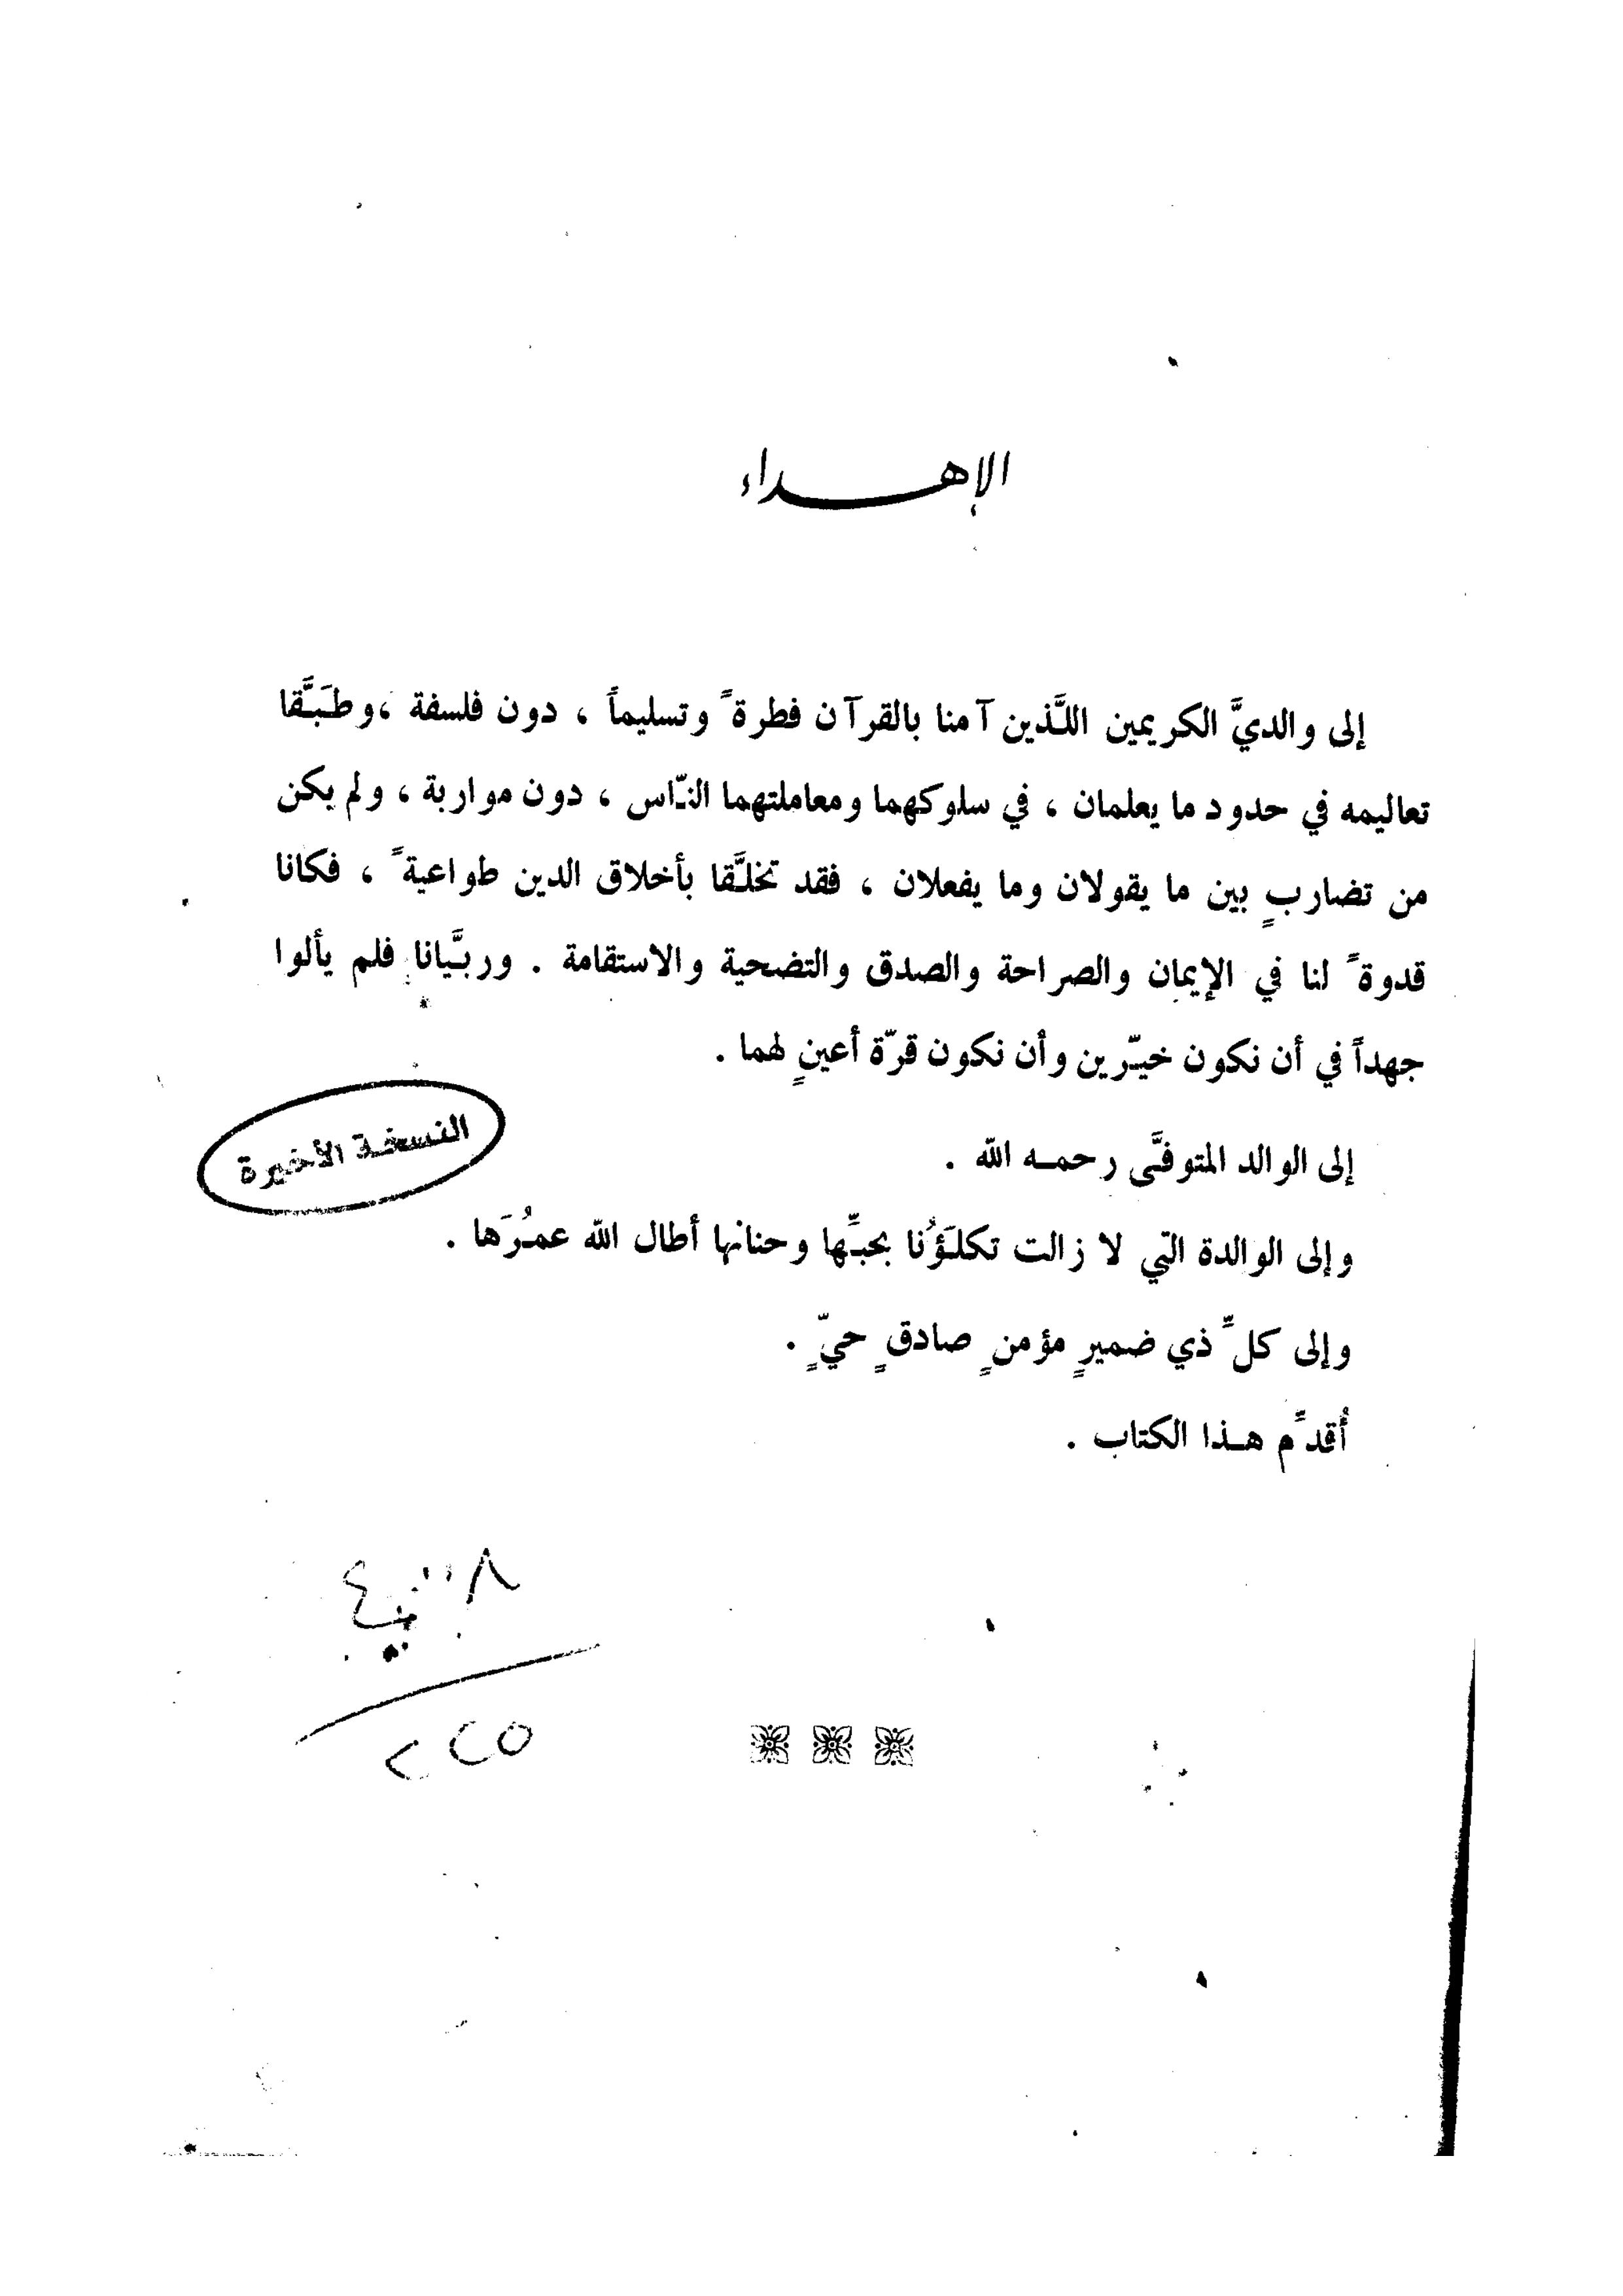 الإهداء
إلى والديَّ الكريمين اللَّذين آمنا بالقرآن فطرةً وتسليماً ، دون فلسفة ، وطبَّقا
تعاليمه في حدود ما يعلمان ، في سلوكهما ومعاملتهما النّاس ، دون مواربة ، ولم يكن
من تضاربٍ بين ما يقولان وما يفعلان ، فقد تخلَّقا بأخلاق الدين طواعيةً ، فكانا
قدوةً لنا في الإيمان والصراحة والصدق والتضحية والاستقامة . وربَّيانا فلم يألوا
جهداً في أن نكون خيّرين وأن نكون قرّة أعينٍ لهما .
النسخة الأخيرة
إلى الوالد المتوفَّى رحمه الله .
وإلى الوالدة التي لا زالت تكلَؤُنا بحبِّها وحنانها أطال الله عمُرَها .
وإلى كلِّ ذي ضميرٍ مؤمنٍ صادقٍ حيٍّ .
أُقدِّم هذا الكتاب .